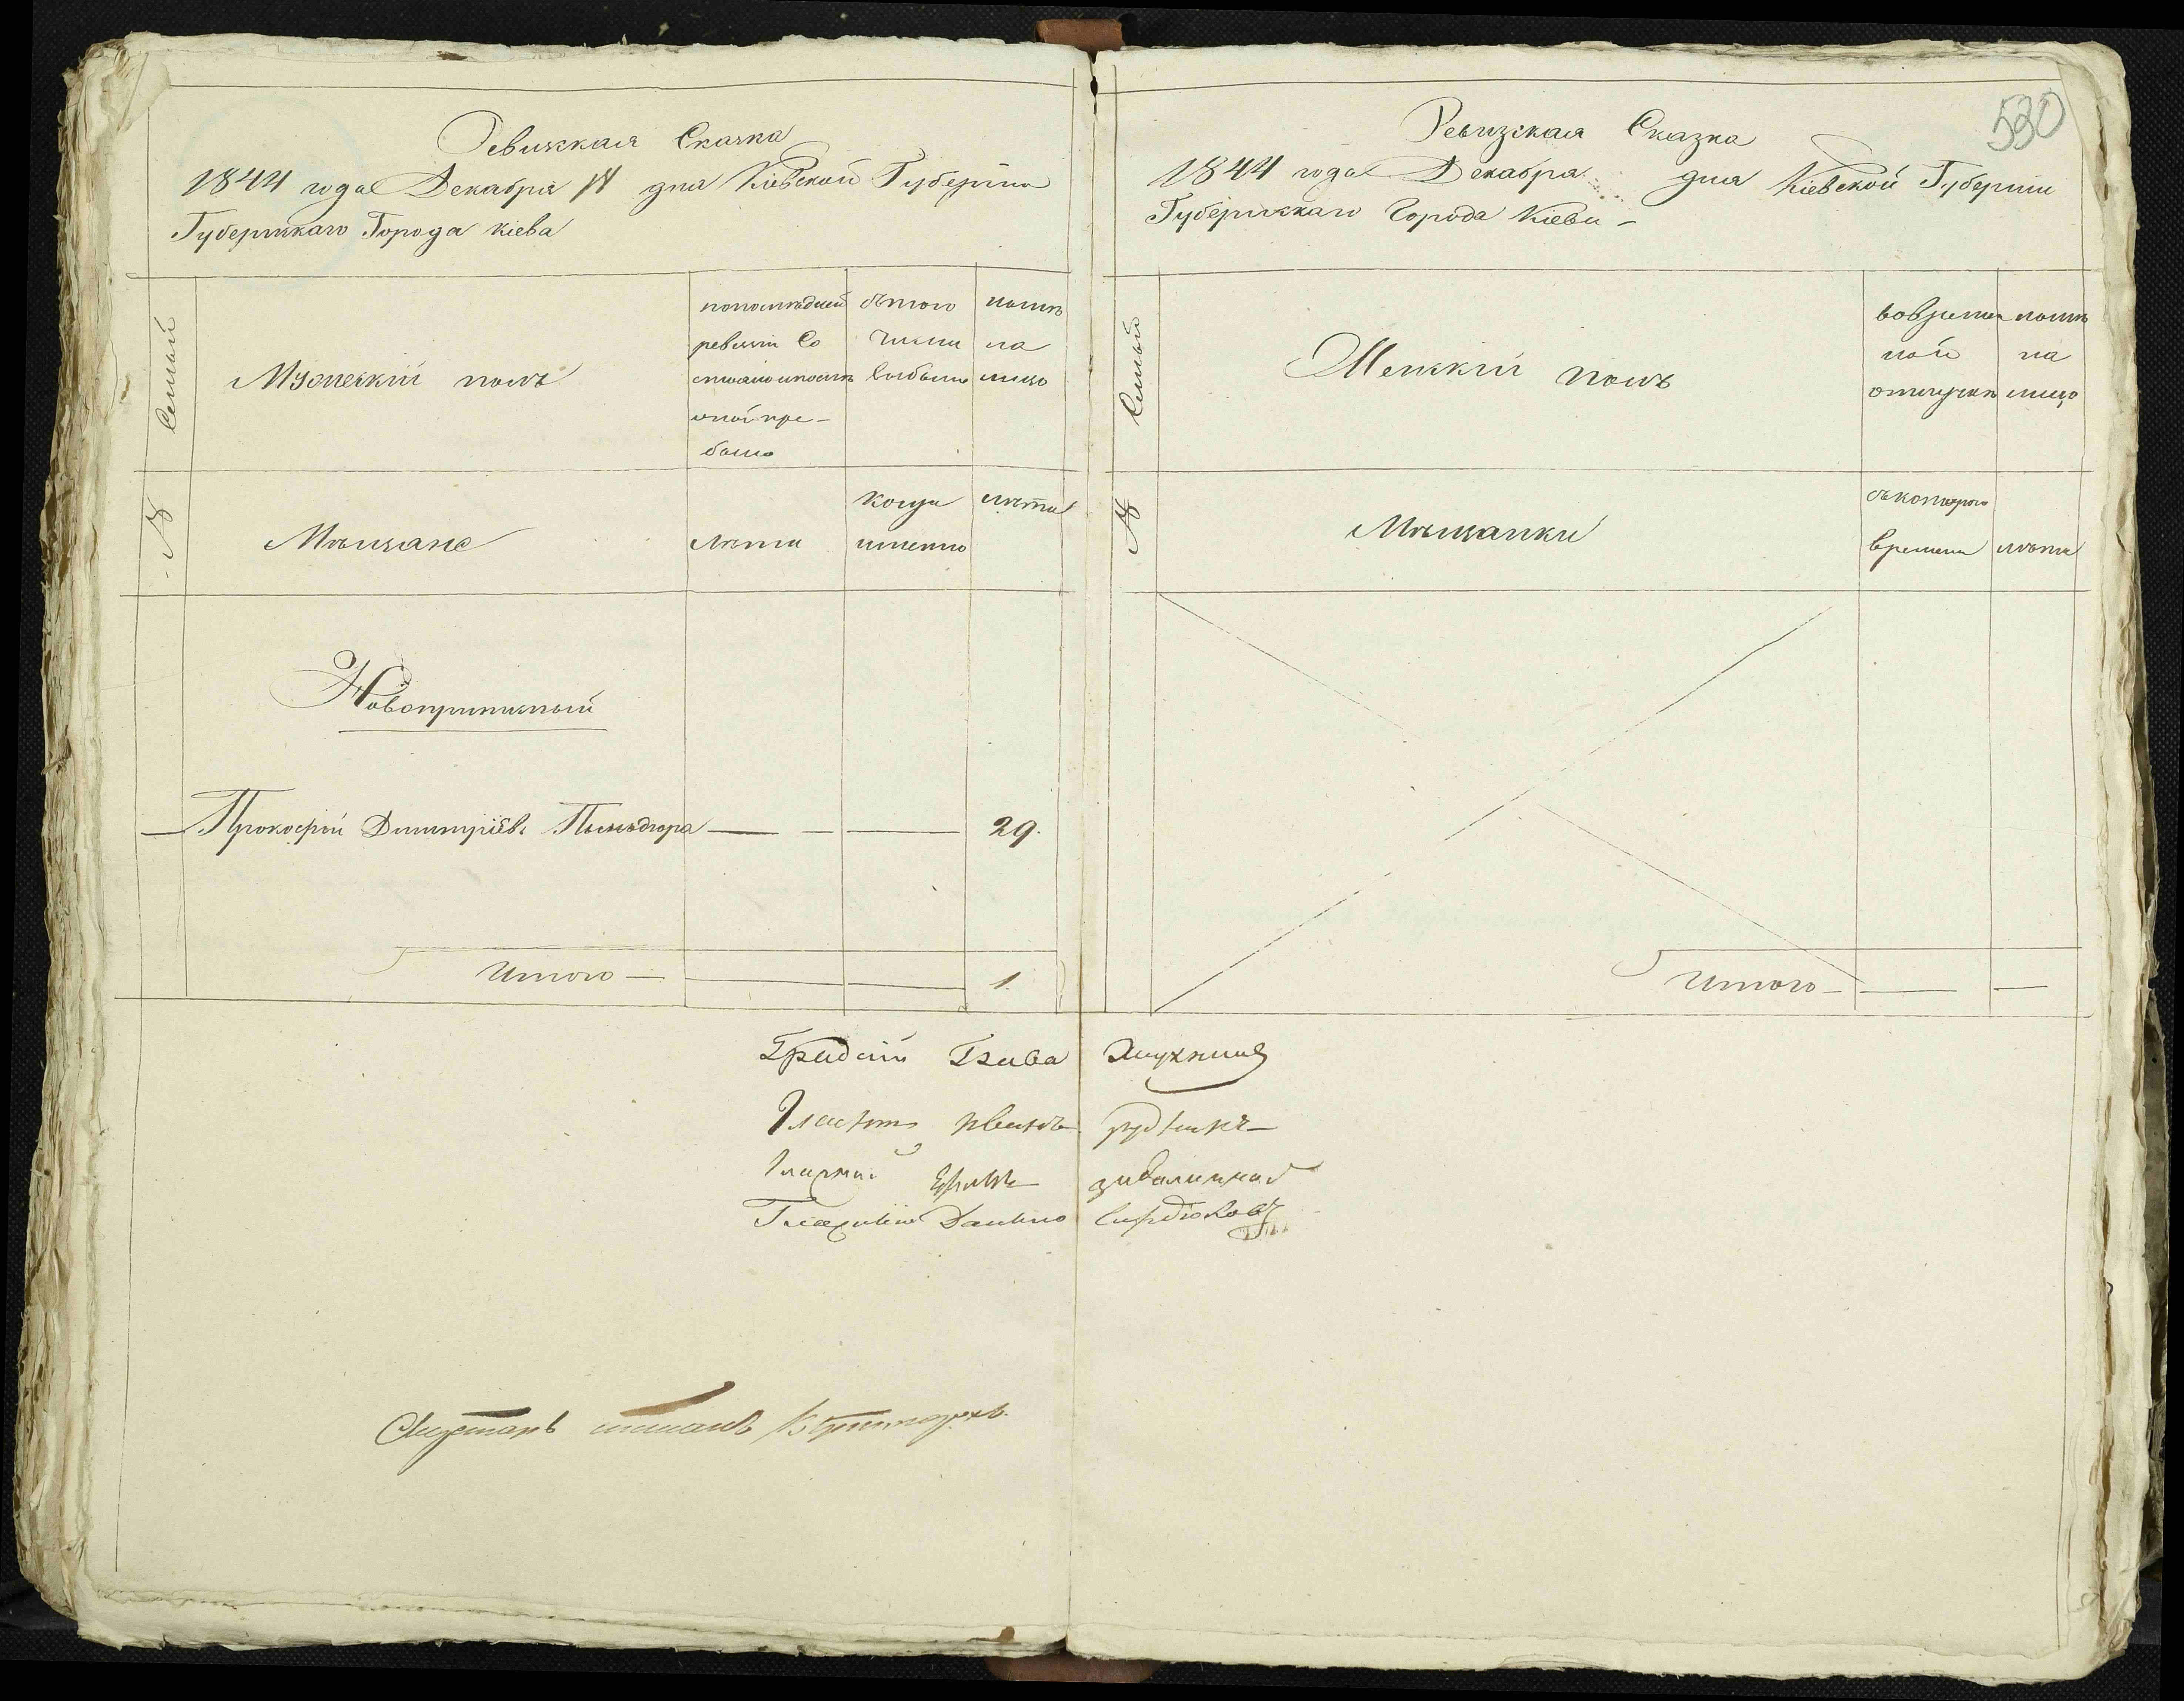 Ревизская Сказка
1844 года Декабря 14 дня Кіевской Губерніи
Губернскаго Города Кіева
№ Семьи
Мужескій полъ
по последней ревизіи состояло и после оной прибыло
Изъ того числа выбыло
Ныне на лицо
Мещане
Лета
Когда именно
Лета
Новоприписный
Прокофій Димитріевъ 29.
Итого 1
530
Ревизская Сказка
1844 года Декабря дня Кіевской Губерніи
Губернскаго Города Кіева
№ Семьи
Женскій полъ
во временной отлучке
Ныне на лицо
Мещанки
Съ котораго времени
Лета
Итого
Градскій Глава
Гласный
Гласный
Гласный